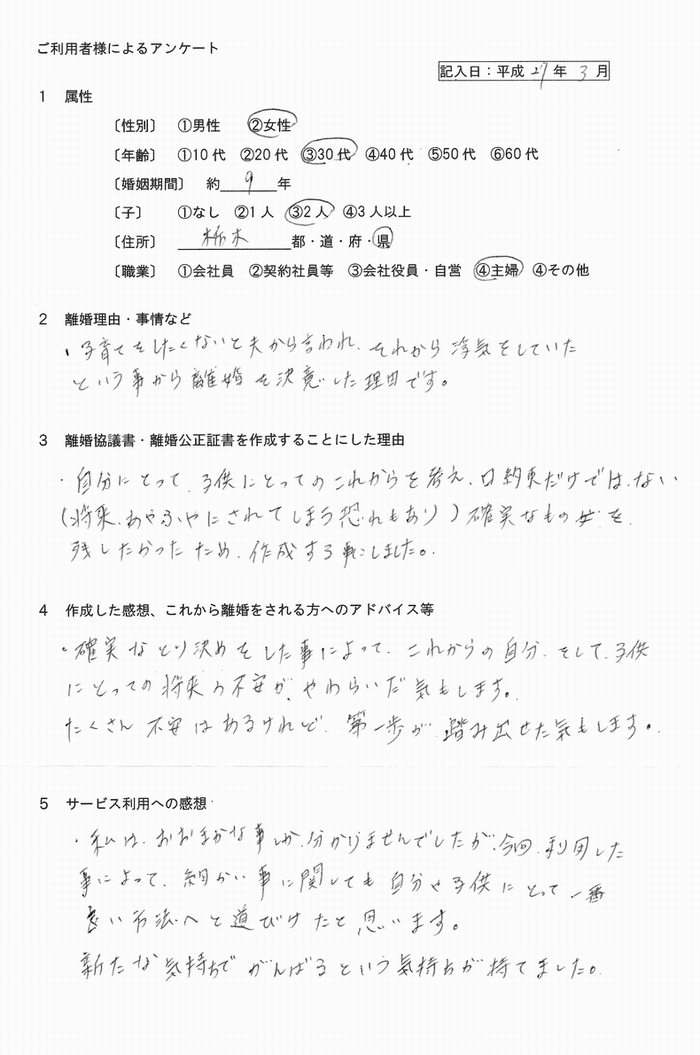 ご利用者様によるアンケート
記入日：平成 27 年 3 月
1 属性
〔性別〕 ①男性 ②女性
〔年齢〕 ①10代 ②20代 ③30代 ④40代 ⑤50代 ⑥60代
〔婚姻期間〕 約 9 年
〔子〕 ①なし ②1人 ③2人 ④3人以上
〔住所〕 栃木 都・道・府・県
〔職業〕 ①会社員 ②契約社員等 ③会社役員・自営 ④主婦 ④その他
2 離婚理由・事情など
・子育てをしたくないと夫から言われ、それから浮気をしていた
という事から離婚を決意した理由です。
3 離婚協議書・離婚公正証書を作成することにした理由
・自分にとって、子供にとってのこれからを考え、口約束だけではない
(将来、あやふやにされてしまう恐れもあり)確実なものを、
残したかったため、作成する事にしました。
4 作成した感想、これから離婚をされる方へのアドバイス等
・確実なとり決めをした事によって、これからの自分、そして、子供
にとっての将来の不安が、やわらいだ気もします。
たくさん不安はあるけれど、第一歩が、踏み出せた気もします。
5 サービス利用への感想
・私は、おおまかな事しか、分かりませんでしたが、今回、利用した
事によって、細かい事に関しても自分や子供にとって一番
良い方法へと道びけたと思います。
新たな気持ちでがんばるという気持ちが持てました。